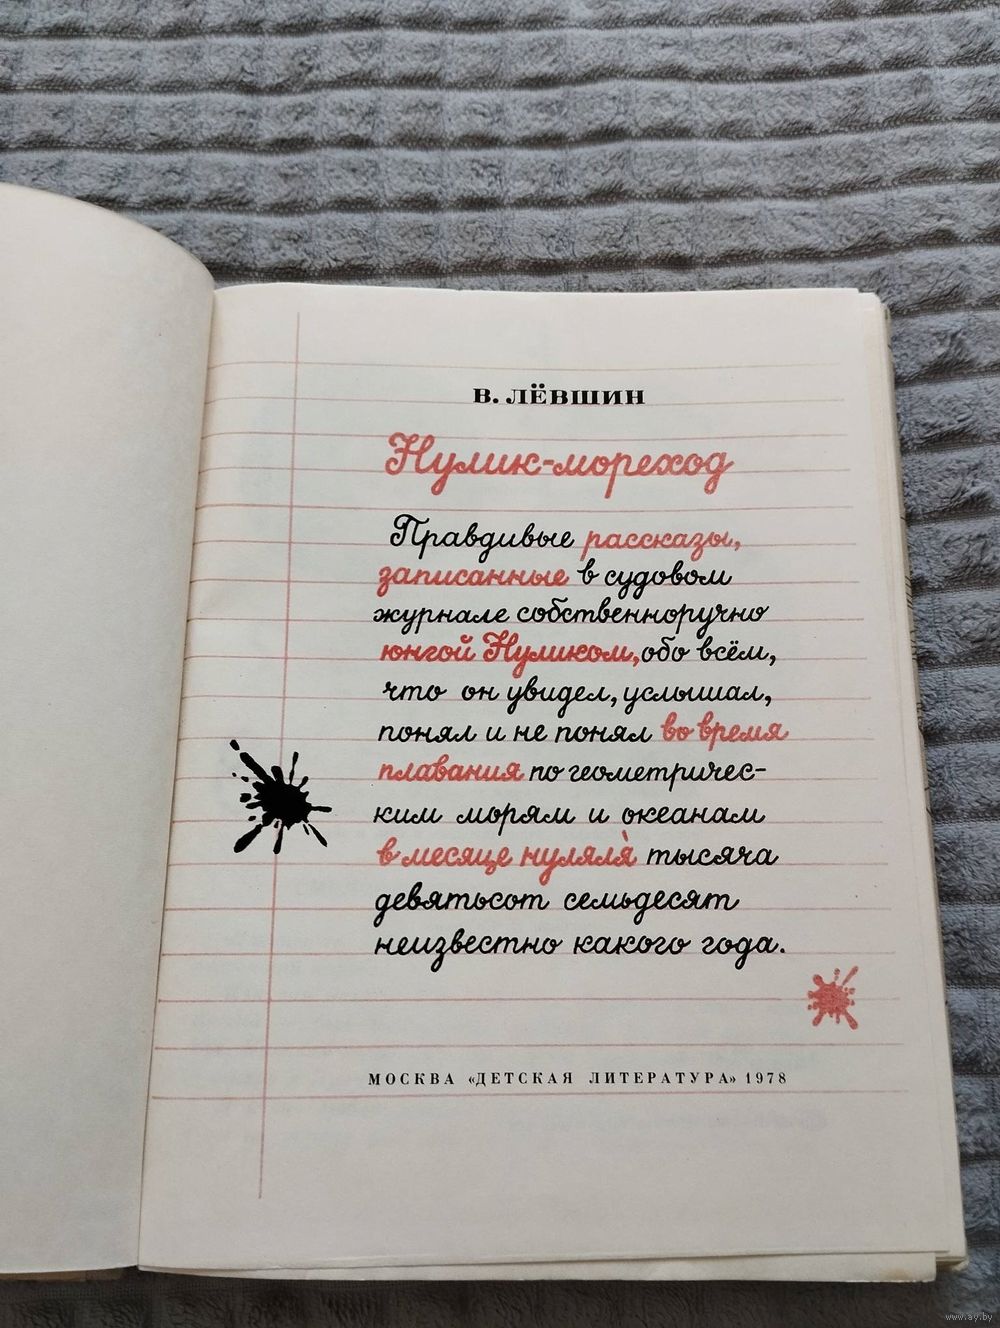 В. ЛЁВШИН
Нулик-мореход
Правдивые рассказы,
записанные в судовом
журнале собственноручно
юнгой Нуликом, обо всём,
что он увидел, услышал,
понял и не понял во время
плавания по геометричес-
ким морям и океанам
в месяце нуляля̀ тысяча
девятьсот семьдесят
неизвестно какого года.
МОСКВА «ДЕТСКАЯ ЛИТЕРАТУРА» 1978
www.ay.by